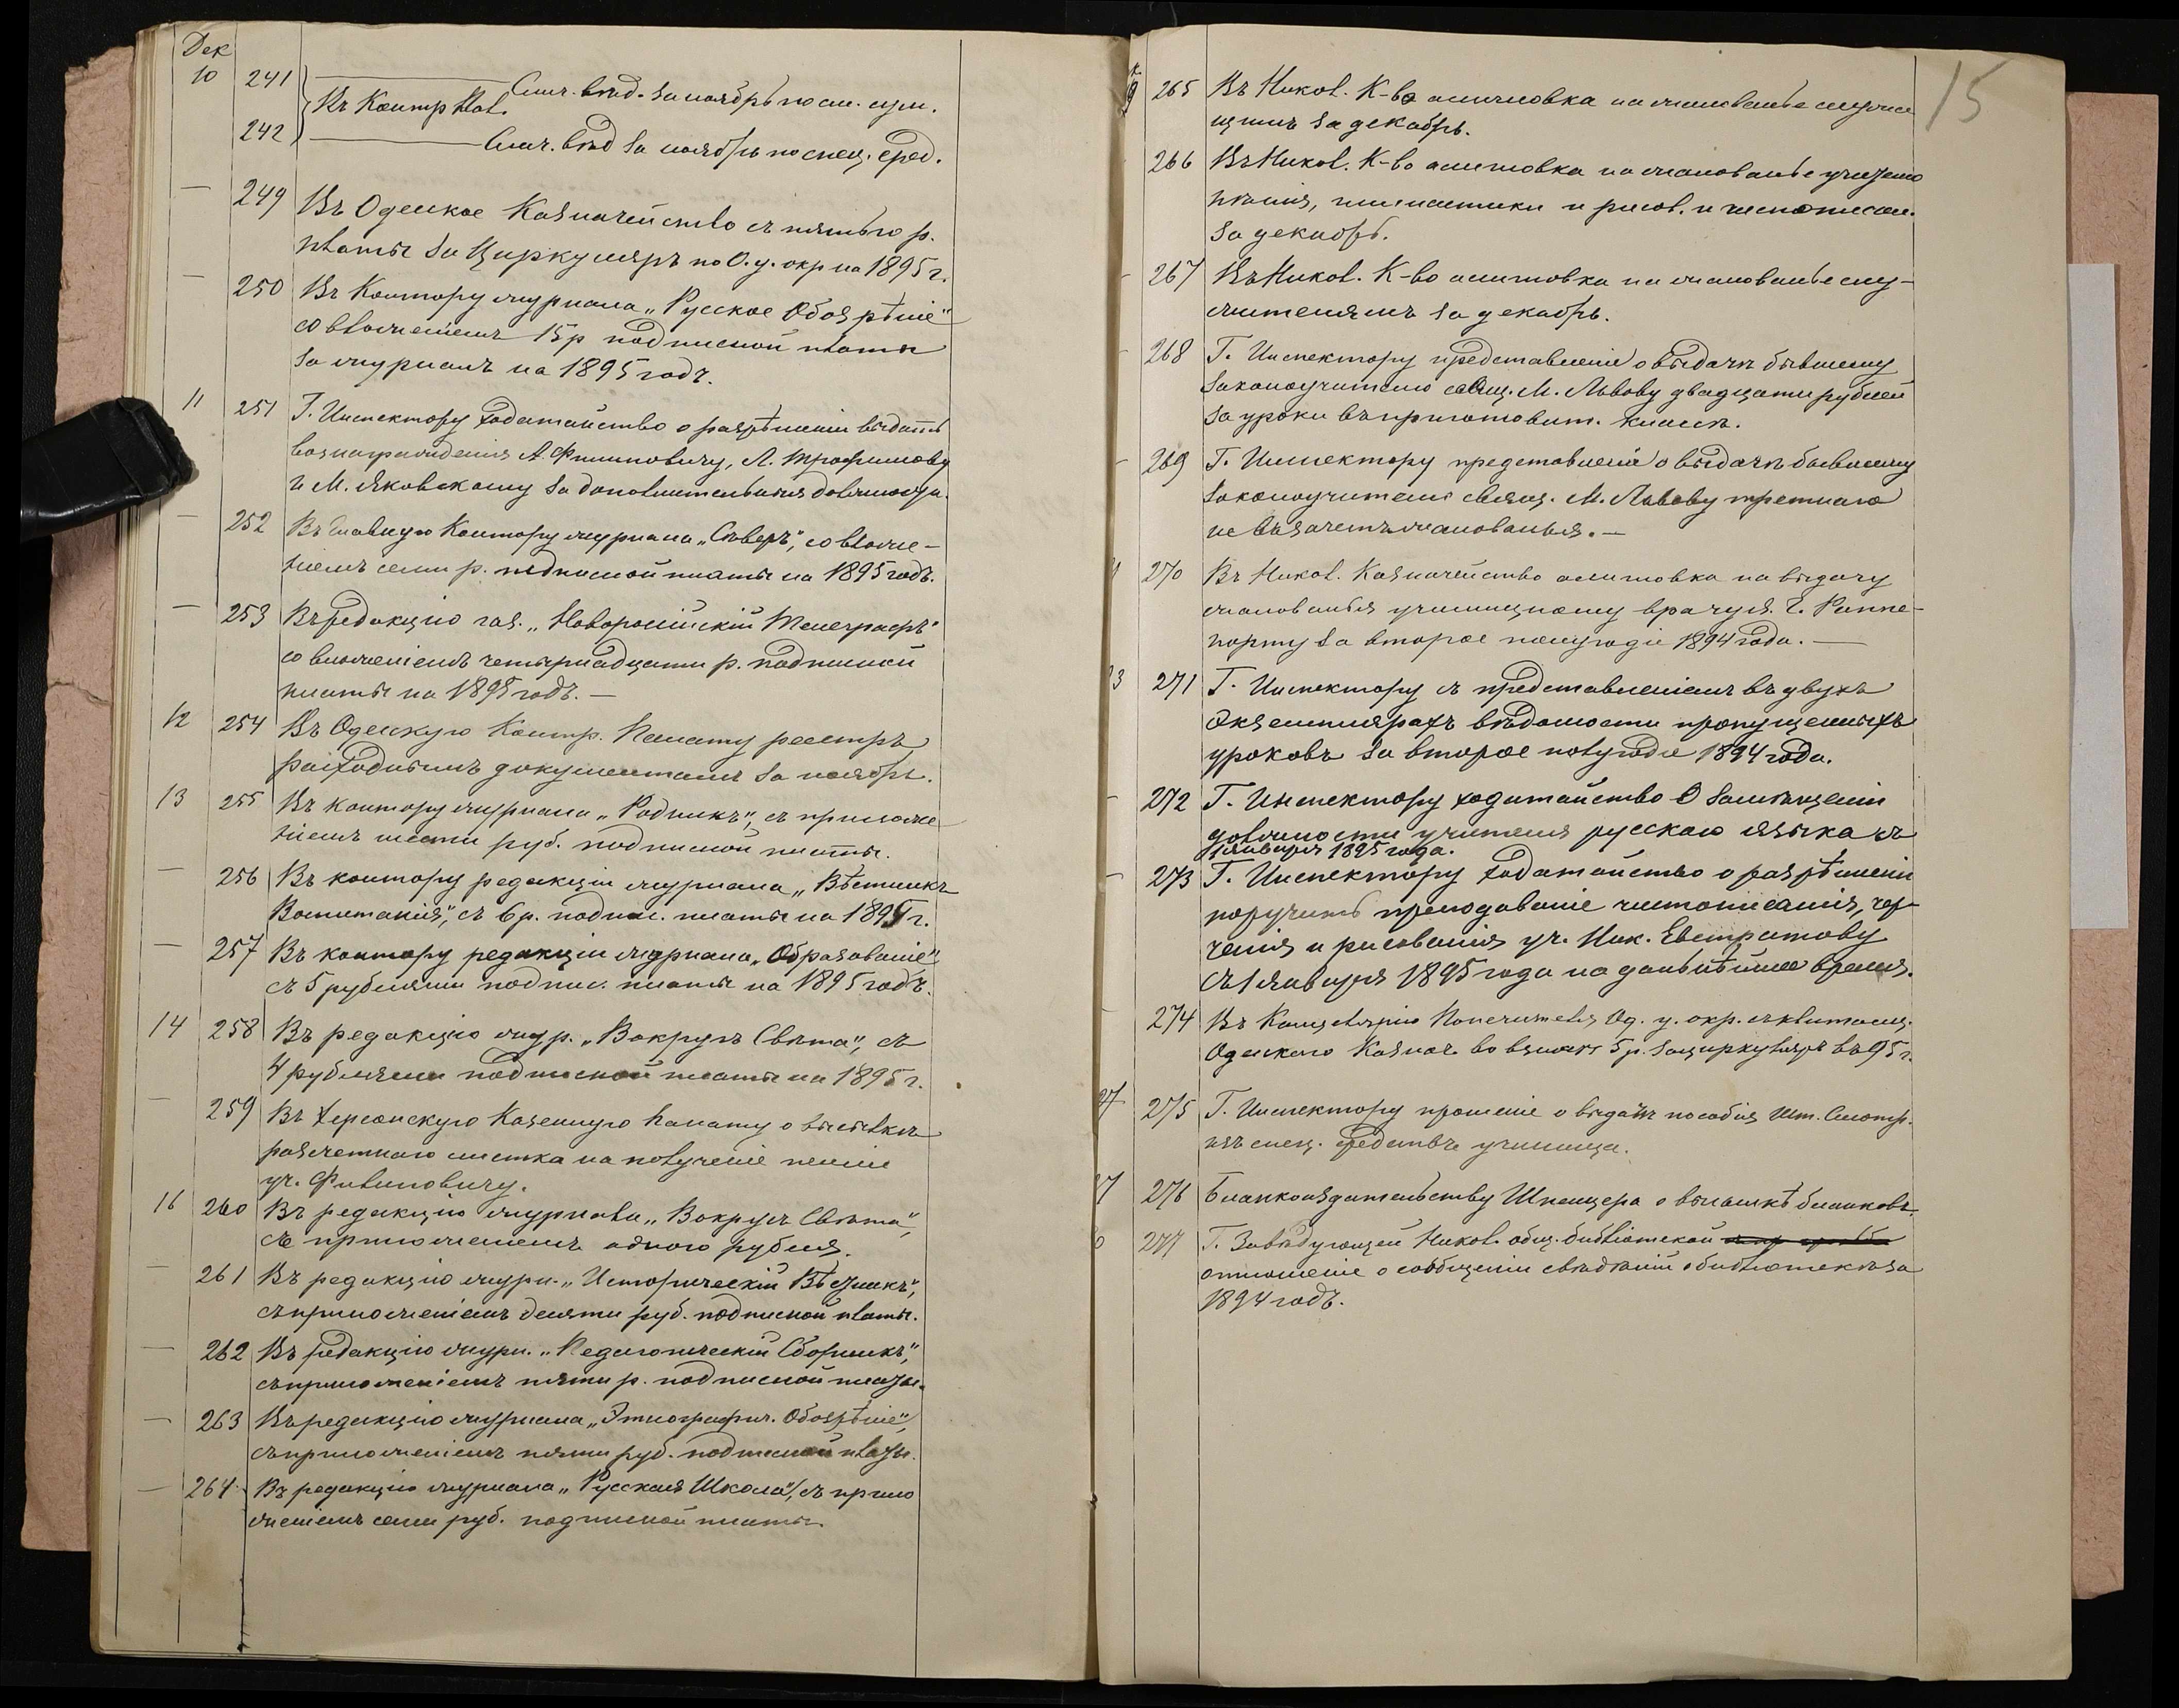 Дек
10 241 Слич. вѣд. за ноябрь по см. сум.
Въ Контр Пал.
242 Слич. вѣд за ноябрь по спец. сред.
— 249 Въ Одесское Казначейство съ пятью р.
платы за Циркуляръ по О. у. окр на 1895 г.
— 250 Въ Контору журнала „Русское Обозрѣніе“
со вложеніемъ 15 р подписной платы
за журналъ на 1895 годъ.
11 251 Г. Инспектору ходатайство о разрѣшеніи выдать
вознагражденія А. Филиповичу, Л. Трофимову
и М. Яковскому за дополнительныя должности.
— 252 Въ Главную Контору журнала „Сѣверъ“, со вложе-
ніемъ семи р. подписной платы на 1895 годъ.
— 253 Въ редакцію газ. „Новороссійскій Телеграфъ“
со вложеніемъ четырнадцати р. подписной
платы на 1895 годъ. —
12 254 Въ Одесскую Контр. Палату реестръ
расходнымъ документамъ за ноябрь.
13 255 Въ контору журнала „Родникъ“, съ приложе
ніемъ шести руб. подписной платы.
— 256 Въ контору редакціи журнала „Вѣстникъ
Воспитанія“, съ 6 р. подпис. платы на 1895 г.
— 257 Въ контору редакціи журнала „Образованіе“
съ 5 рублями подпис. платы на 1895 годъ.
14 258 Въ редакцію жур. „Вокругъ Свѣта“, съ
4 рублями подписной платы на 1895 г.
— 259 Въ Херсонскую Казенную Палату о высылкѣ
разсчетнаго листка на полученіе пенсіи
уч. Филиповичу.
16 260 Въ редакцію журнала „Вокругъ Свѣта“,
съ приложеніемъ одного рубля.
— 261 Въ редакцію журн. „Историческій Вѣстникъ“,
съ приложеніемъ десяти руб. подписной платы.
— 262 Въ редакцію журн. „Педагогическій Сборникъ“,
съ приложеніемъ пяти р. подписной платы.
— 263 Въ редакцію журнала „Этнографич. Обозрѣніе“,
съ приложеніемъ пяти руб. подписной платы.
— 264 Въ редакцію журнала „Русская Школа“, съ прило
женіемъ семи руб. подписной платы.
15
265 Въ Никол. К-во асигновка на жалованье служа
щимъ за декабрь.
266 Въ Никол. К-во асигновка на жалованье учителю
пѣнія, гимнастики и рисов. и чистописан.
за декабрь.
267 Въ Никол. К-во асигновка на жалованье слу-
жителямъ за декабрь.
268 Г. Инспектору представленіе о выдачѣ бывшему
законоучителю свящ. М. Львову двадцати рублей
за уроки въ приготовит. классѣ.
269 Г. Инспектору представленіе о выдачѣ бывшему
законоучителю свящ. М. Львову третнаго
не въ зачетъ жалованья. —
270 Въ Никол. Казначейство асигновка на выдачу
жалованья училищному врачу Я. Г. Раппо-
порту за второе полугодіе 1894 года. —
271 Г. Инспектору съ представленіемъ въ двухъ
экземплярахъ вѣдомости пропущенныхъ
уроковъ за второе полугодіе 1894 года.
272 Г. Инспектору ходатайство о замѣщеніи
должности учителя русскаго языка съ
1 января 1895 года.
273 Г. Инспектору ходатайство о разрѣшеніи
поручить преподаваніе чистописанія, чер-
ченія и рисованія уч. Ник. Евстратову
съ 1 января 1895 года на дальнѣйшее время.
274 Въ Канцелярію Попечителя Од. у. окр. съ квитанц.
Одесскаго Казнач. во взносѣ 5 р. за циркуляръ въ 95 г.
275 Г. Инспектору прошеніе о выдачѣ пособія шт. Смотр.
изъ спец. средствъ училища.
276 Бланкоиздательству Шпенцера о высылкѣ бланковъ.
277 Г. Завѣдующей Никол. общ. библіотекой
отношеніе о сообщеніи свѣдѣній о библіотекѣ за
1894 годъ.